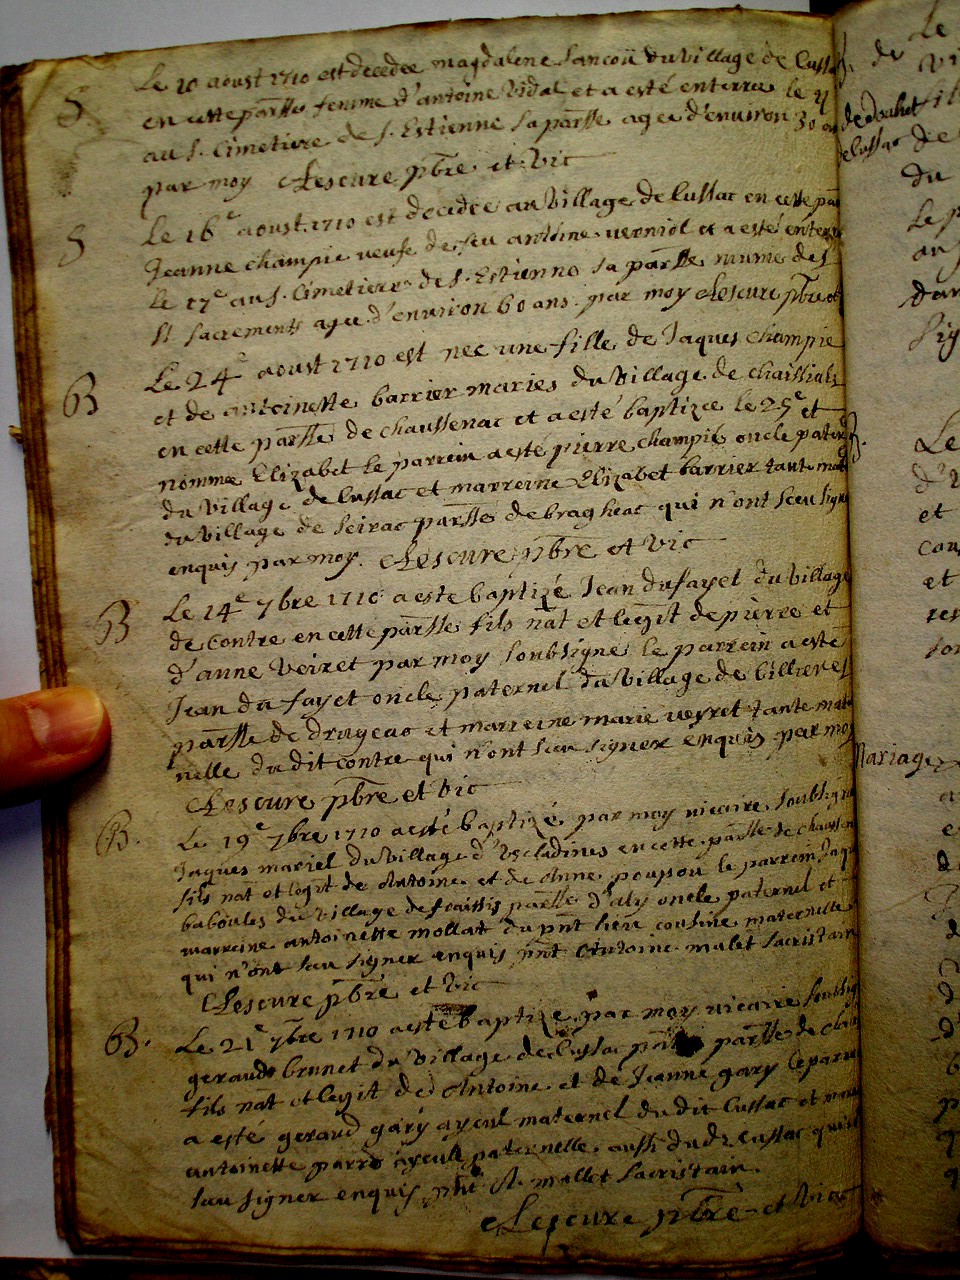 S Le 10 aoust 1710 est decedee magdalene Lancoü du Village de Lussa
en cette parsse femme d'antoine Vidal et a esté enterree le 11
au S. Cimetiere de S. Estienne sa parsse agee d'environ 30 an
par moy Lescure pbre et vic
S Le 16e aoust 1710 est decedee au Village de Lussac en cette par
Jeanne champie veufe de feu anthoine verniol et a esté enterre
le 17e au S. Cimetiere de S. Estienne sa parsse munie des
St sacrements agee d'environ 60 ans par moy Lescure pbre et
B Le 24e aoust 1710 est nee une fille de Jaques champie
et de antoinette barrier maries du Village de
en cette parsse de chaussenac et a esté baptizee le 25e et
nommé Elizabet le parrein a esté pierre champié oncle pater
du Village de Lussac et marreine Elizabet barrier tante mat
du Village de Seirac parsse de bragheac qui n'ont sceu signe
enquis par moy. Lescure pbre et vic
B Le 14e 7bre 1710 a este baptizé Jean dufayet du Village
de Contre en cette parsse fils nat et legit de pierre et
d'anne Veiret par moy soubsigné le parrein a esté
Jean du fayet oncle paternel du Village de billieres
parsse de drugeac et marreine marie veyret tante mat
nelle du dit contre qui n'ont sceu signer enquis par moy
Lescure pbre et vic
B. Le 19e 7bre 1710 a esté baptizé par moy vicaire soubsigné
Jaques mariel du Village d'Escladines en cette parsse de chaussen
fils nat et legit de Antoine et de Anne poujou le parrein Jaq
baboules du Village de parsse d'aly oncle paternel et
marreine antoinette mollat du pnt lieu cousine maternelle
qui n'ont sceu signer enquis pnt Antoine malet sacristain
Lescure pbre et vic
B. Le 21e 7bre 1710 a esté baptizé par moy vicaire soubsig
geraud brunet du Village de Lussac parsse de chau
fils nat et legit de Antoine et de Jeanne gary le parre
a esté geraud gary ayeul maternel du dit Lussac et marr
antoinette parro ayeule paternelle aussi du dt Lussac qui n
sceu signer enquis pnt A. mallet sacristain.
Lescure pbre et vic
de
de
Mariage